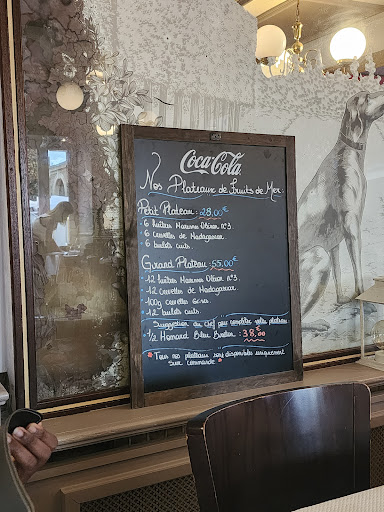 Coca-Cola
Nos Plateaux de Fruits de Mer.
Petit Plateau : 28,00€
- 6 huîtres Marennes Oléron n°3
- 6 Crevettes de Madagascar
- 6 bulots cuits.
Grand Plateau : 55,00€
- 12 huîtres Marennes Oléron n°3.
- 12 Crevettes de Madagascar
- 100g Crevettes Grises.
- 12 bulots cuits.
Suggestion du Chef pour compléter votre plateau
- 1/2 Homard Bleu Breton : 38,00€
* Tous nos plateaux sont disponibles uniquement
sur commande *